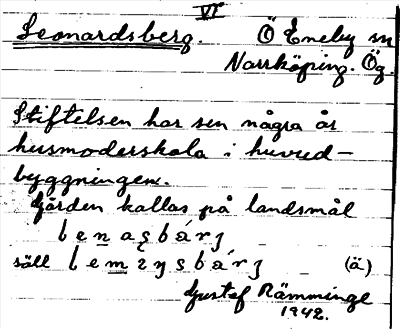 VI
Leonardsberg. Ö Eneby sn
Norrköping. Ög.
Stiftelsen har sen några år
husmoderskola i huvud-
byggningen.
Gården kallas på landsmål
säll (ä)
Gustaf Rämminge
1942.